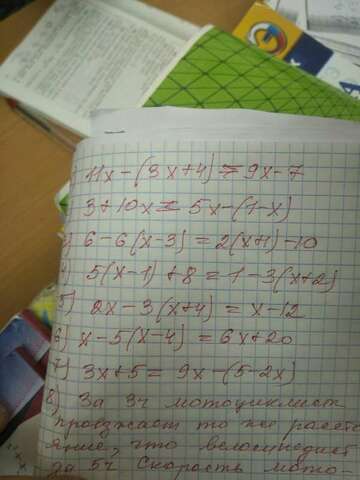 11x-(3x+4)=9x-7
3+10x=5x-(1-x)
3) 6-6(x-3)=2(x+1)-10
5(x-1)+8=1-3(x+2)
5) 2x-3(x+4)=x-12
6) x-5(x-4)=6x+20
7) 3x+5=9x-(5-2x)
8) За 3ч мотоциклист
проезжает то же расто
яние, что велосипедист
за 5ч Скорость мото-